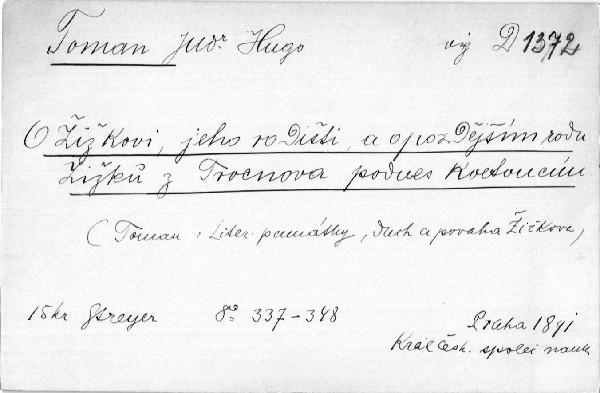 Toman Judr Hugo viz D 1372
O Žižkovi, jeho rodišti, a o pozdějším rodu
Žižků z Trocnova podnes kvetoucím
(Toman: Liter. památky, duch a povaha Žižkova)
15 kr Greyer 8° 337-348
Praha 1891
Král Česk. společ nauk